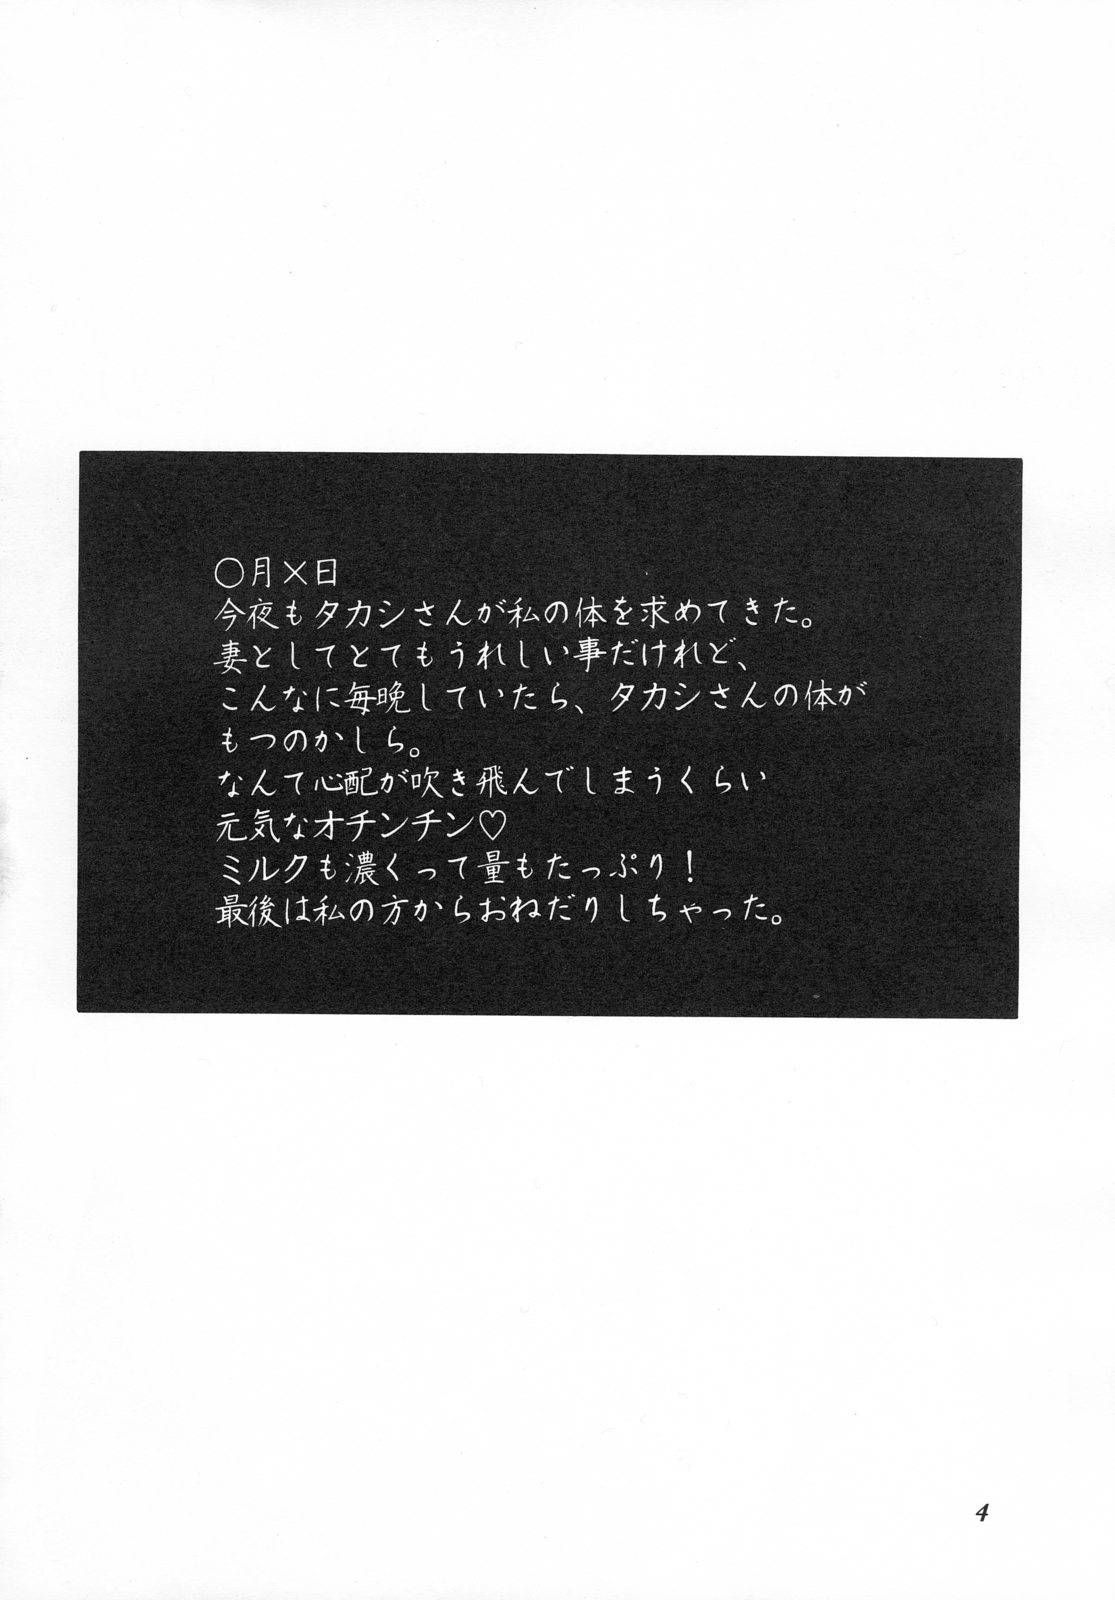 ○月×日
今夜もタカシさんが私の体を求めてきた。
妻としてとてもうれしい事だけれど、
こんなに毎晩していたら、タカシさんの体が
もつのかしら。
なんて心配が吹き飛んでしまうくらい
元気なオチンチン♡
ミルクも濃くって量もたっぷり！
最後は私の方からおねだりしちゃった。
4